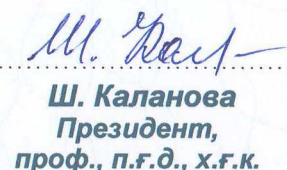 Ш. Кал
Ш. Каланова
Президент,
проф., п.ғ.д., х.ғ.к.